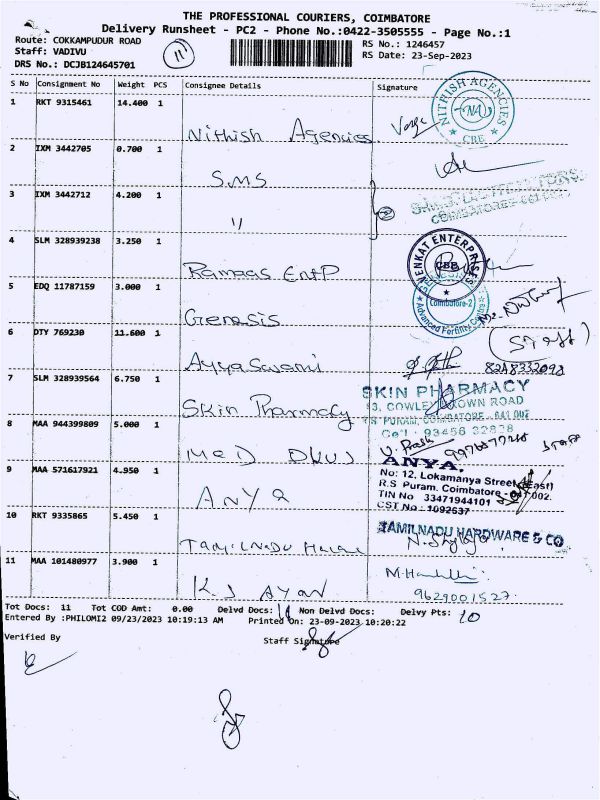 THE PROFESSIONAL COURIERS, COIMBATORE
Delivery Runsheet - PC2 - Phone No.:0422-3505555 - Page No.:1
Route: COKKAMPUDUR ROAD
Staff: VADIVU
DRS No.: DCJB124645701
11
RS No.: 1246457
RS Date: 23-Sep-2023
S No Consignment No Weight PCS Consignee Details Signature
1 RKT 9315461 14.400 1
Nithish Agencies
NITHISH AGENCIES
NA
CBE
2 IXM 3442705 0.700 1
SMS
3 IXM 3442712 4.200 1
"
2
COIMBATORE
4 SLM 328939238 3.250 1
Ramaas EntP
VENKAT ENTERPRISES
CBE
5 EDQ 11787159 3.000 1
Genesis
Coimbatore-2
Advanced Fertility Centre
6 DTY 769230 11.600 1
Ayyaswami
(Staff)
8248332098
7 SLM 328939564 6.750 1
Skin Pharmacy
SKIN PHARMACY
13, COWLEY BROWN ROAD
R.S PURAM, COIMBATORE - 641 002
Cell : 93456 32838
8 MAA 944399809 5.000 1
MED
9 MAA 571617921 4.950 1
ANYA
ANYA.
No: 12, Lokamanya Street (East)
R.S Puram. Coimbatore - 641 002.
TIN No 33471944101
CST No 1092637
10 RKT 9335865 5.450 1
TAMILNADU
TAMILNADU HARDWARE & CO
11 MAA 101480977 3.900 1
KJ AYAN
9629001527
Tot Docs: 11 Tot COD Amt: 0.00 Delvd Docs: 11 Non Delvd Docs: Delvy Pts: 10
Entered By :PHILOMI2 09/23/2023 10:19:13 AM Printed on: 23-09-2023 10:20:22
Verified By Staff Signature